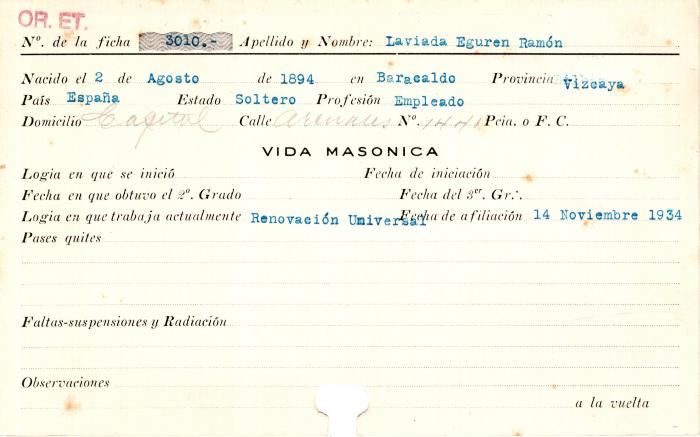 OR. ET.
Nº. de la ficha 3010.- Apellido y Nombre: Laviada Eguren Ramón
Nacido el 2 de Agosto de 1894 en Baracaldo Provincia Vizcaya
País España Estado Soltero Profesión Empleado
Domicilio Capital Calle Arenales Nº. 1441 Pcia. o F. C.
VIDA MASONICA
Logia en que se inició Fecha de iniciación
Fecha en que obtuvo el 2º. Grado Fecha del 3er. Gr∴
Logia en que trabaja actualmente Renovación Universal Fecha de afiliación 14 Noviembre 1934
Pases quites
Faltas-suspensiones y Radiación
Observaciones
a la vuelta